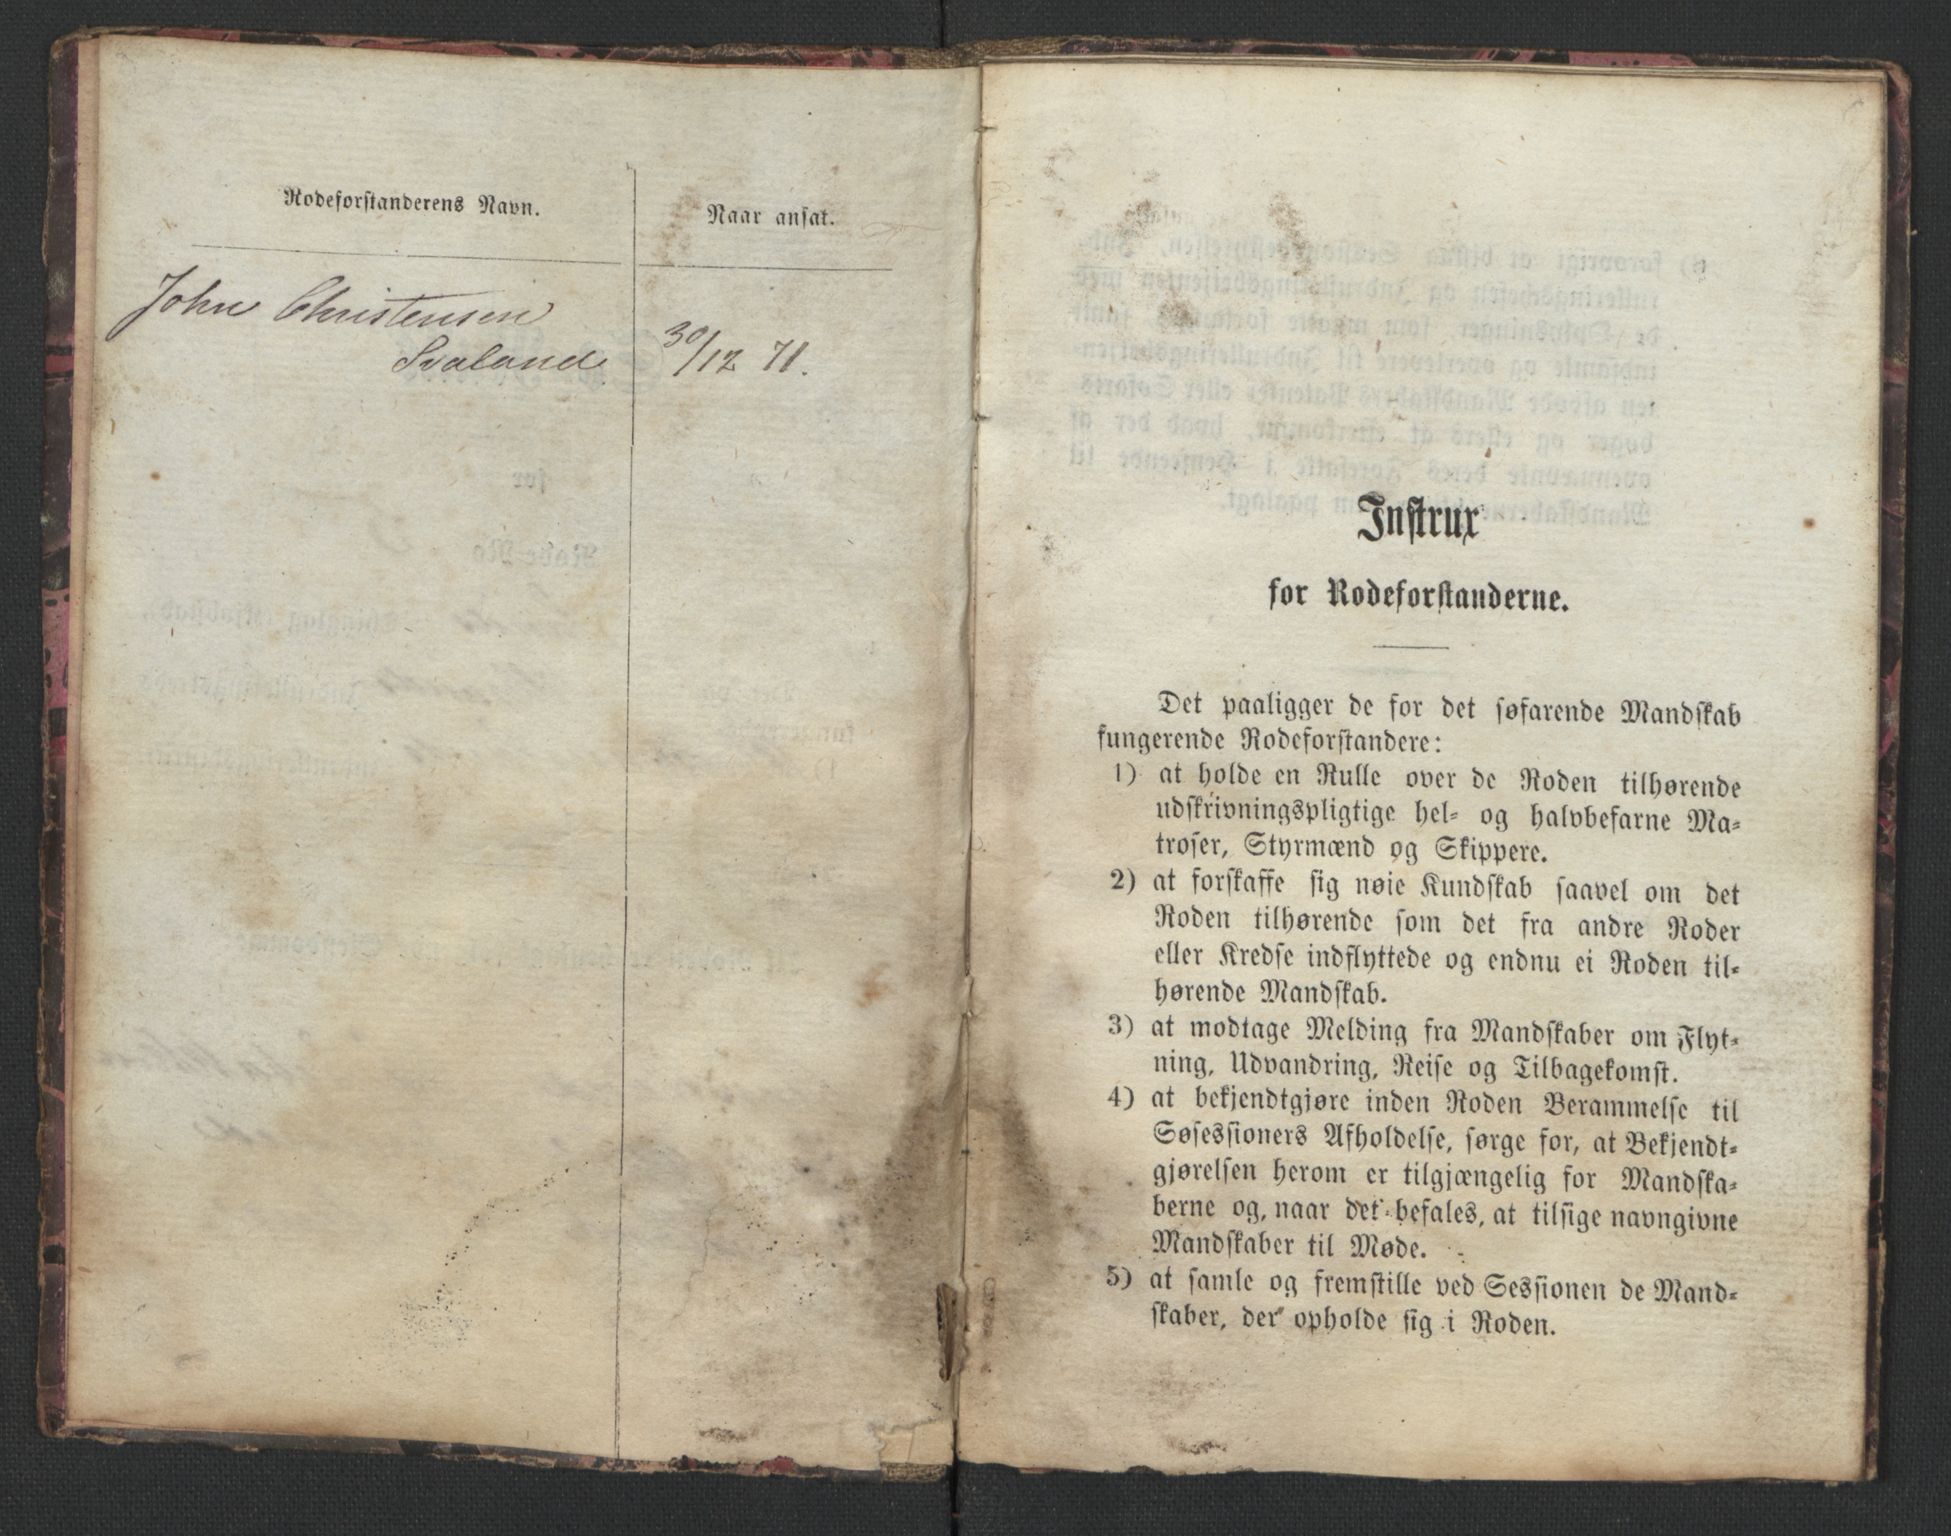 Rodeforstanderens Navn.
Naar ansat.
John Christensen
Svaland
30/12 71.
Instrux
for Rodeforstanderne.
Det paaligger de for det søfarende Mandskab
fungerende Rodeforstandere:
1) at holde en Rulle over de Roden tilhørende
udskrivningspligtige hel- og halvbefarne Ma-
troser, Styrmænd og Skippere.
2) at forskaffe sig nøie Kundskab saavel om det
Roden tilhørende som det fra andre Roder
eller Kredse indflyttede og endnu ei Roden til-
hørende Mandskab.
3) at modtage Melding fra Mandskaber om Flyt-
ning, Udvandring, Reise og Tilbagekomst.
4) at bekjendtgjøre inden Roden Berammelse til
Søsessioners Afholdelse, sørge for, at Bekjendt-
gjørelsen herom er tilgjængelig for Mandska-
berne og, naar det befales, at tilsige navngivne
Mandskaber til Møde.
5) at samle og fremstille ved Sessionen de Mand-
skaber, der opholde sig i Roden.